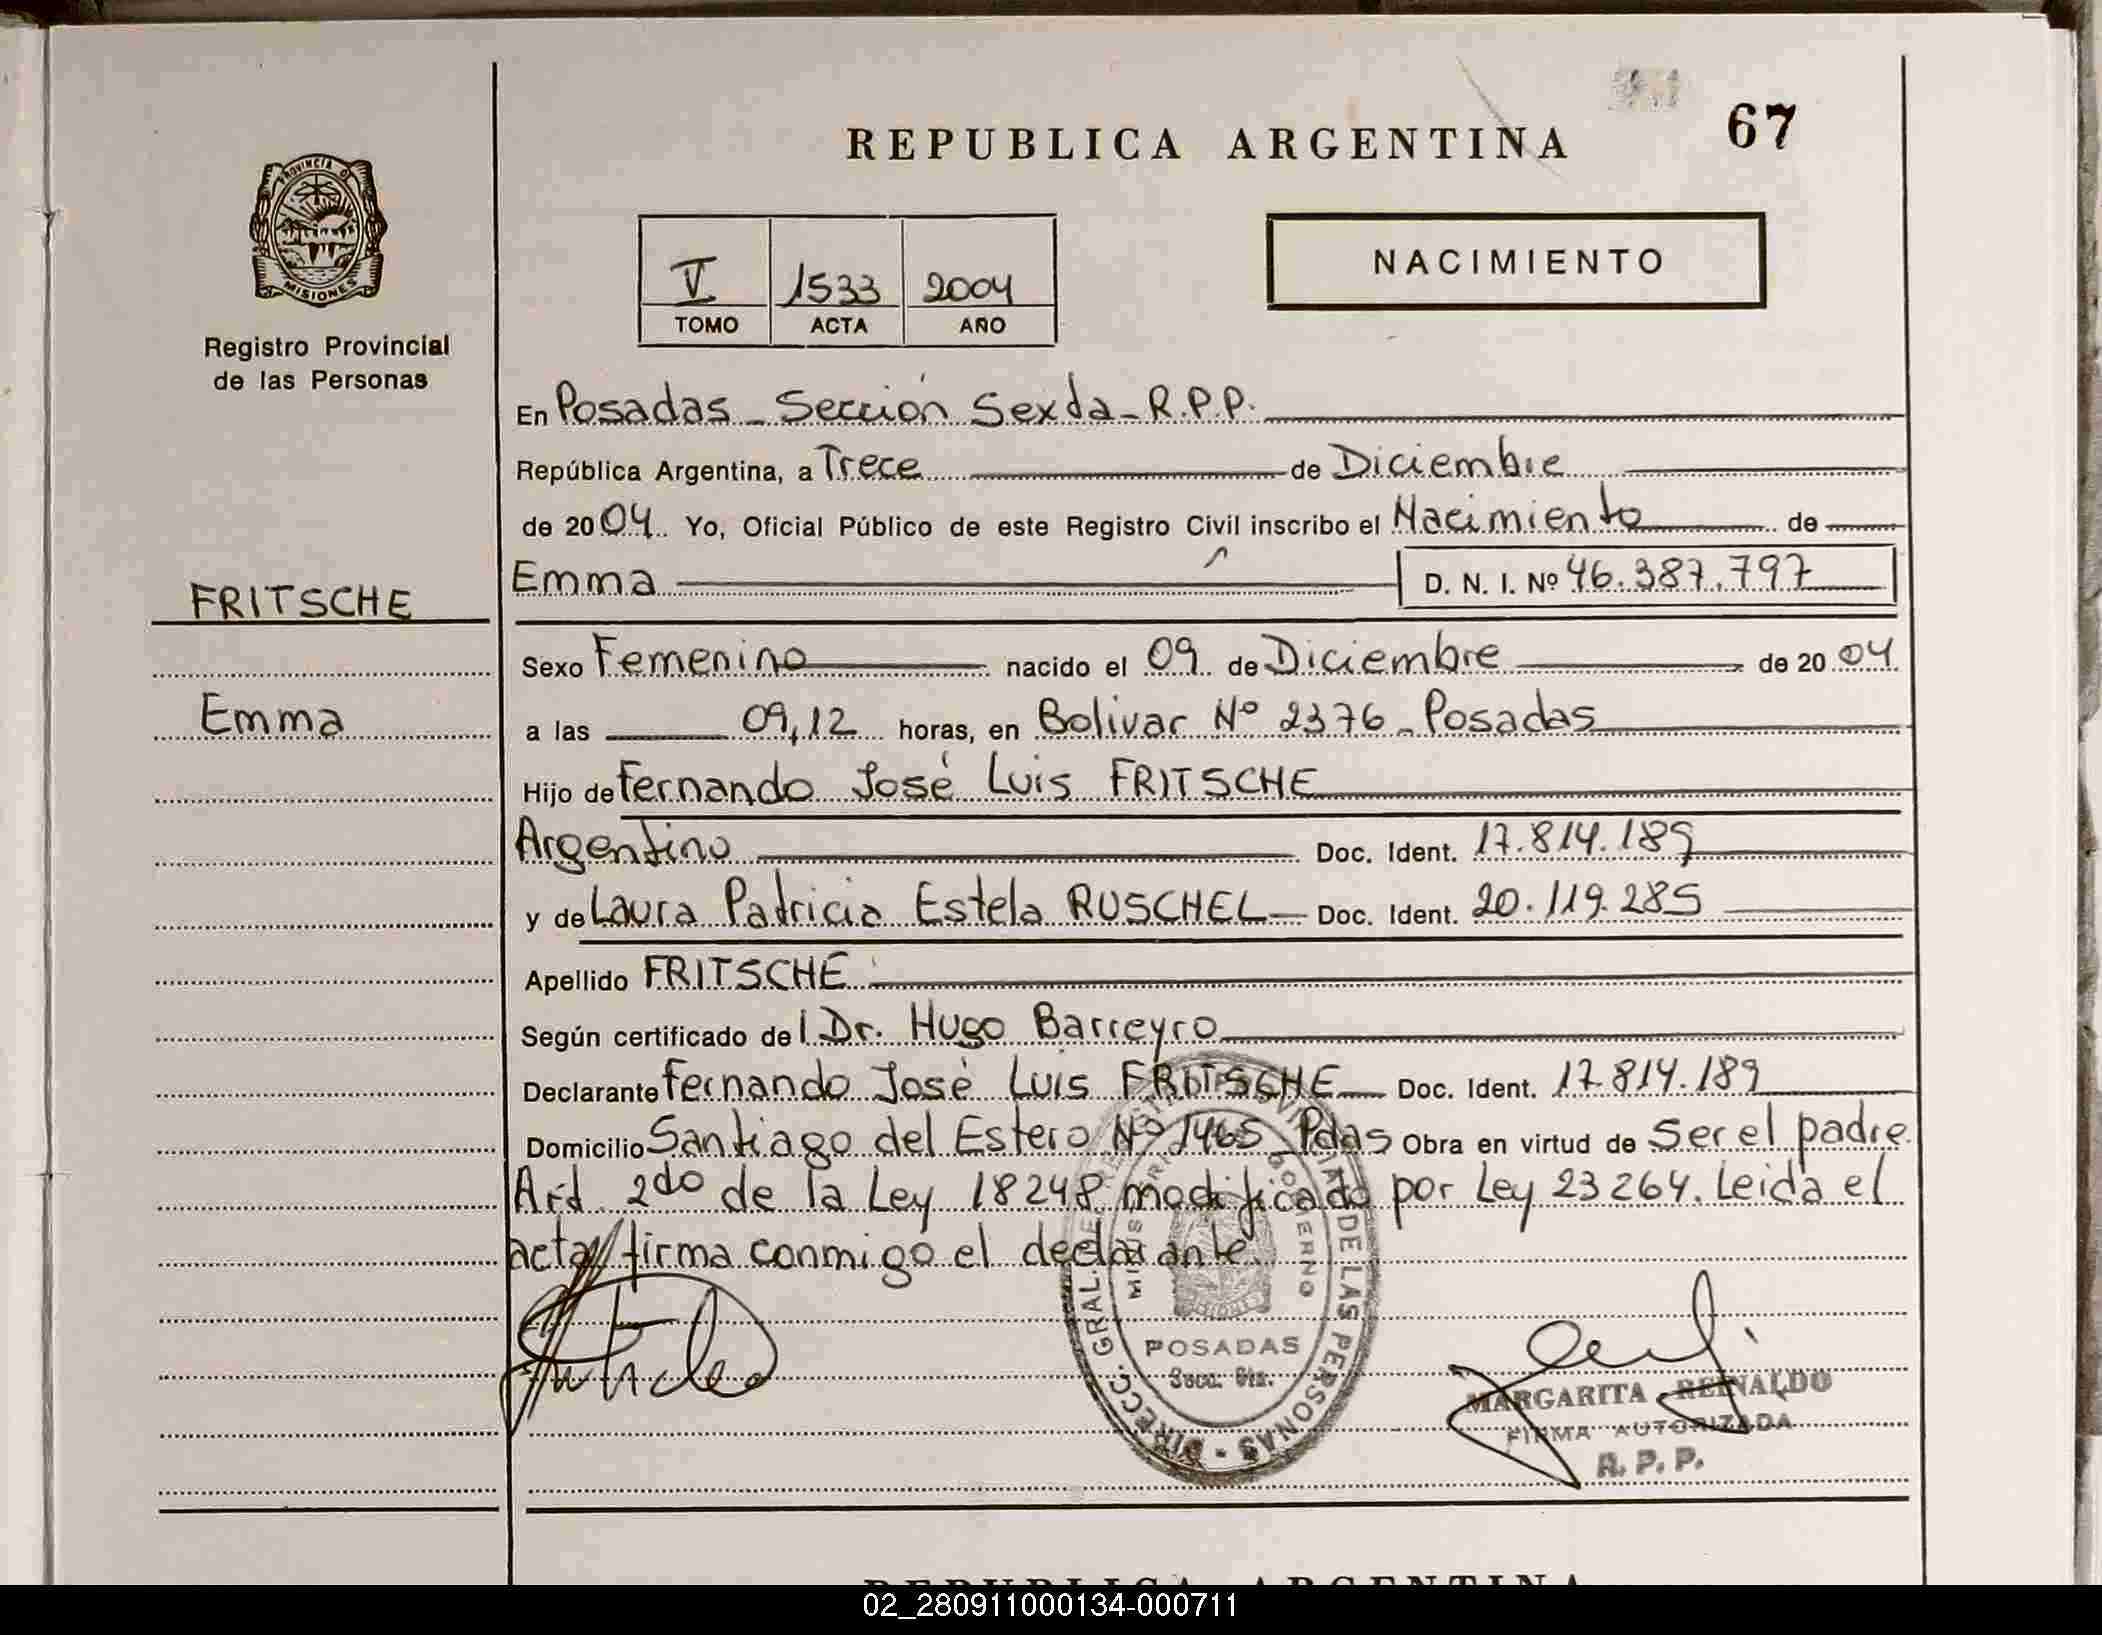 REPUBLICA ARGENTINA
67
PROVINCIA DE
MISIONES
Registro Provincial
de las Personas
V 1533 2004
TOMO ACTA AÑO
NACIMIENTO
En Posadas - Sección Sexta - R.P.P.
República Argentina, a Trece de Diciembre
de 2004 Yo, Oficial Público de este Registro Civil inscribo el Nacimiento de
FRITSCHE
Emma D. N. I. Nº 46.387.797
Sexo Femenino nacido el 09 de Diciembre de 2004
Emma
a las 09,12 horas, en Bolivar Nº 2376 - Posadas
Hijo de Fernando José Luis FRITSCHE
Argentino Doc. Ident. 17.814.189
y de Laura Patricia Estela RUSCHEL Doc. Ident. 20.119.285
Apellido FRITSCHE
Según certificado del Dr. Hugo Barreyro
Declarante Fernando José Luis FRITSCHE Doc. Ident. 17.814.189
Domicilio Santiago del Estero Nº 1465 Pdas Obra en virtud de Ser el padre
Art 2do de la Ley 18248 modificado por Ley 23264. Leida el
acta firma conmigo el declarante.
DE LAS PERSONAS - DIRECC. GRAL.
GOBIERNO
POSADAS
Secc. 6ta.
MARGARITA REINALDO
FIRMA AUTORIZADA
R. P. P.
REPUBLICA ARGENTINA
02_280911000134-000711